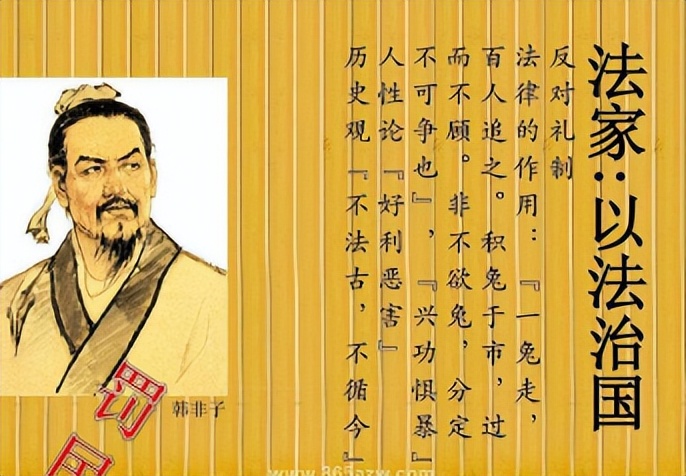 法家：以法治国
反对礼制
法律的作用：『一兔走，
百人追之。积兔于市，过
而不顾。非不欲兔，分定
不可争也』，『兴功惧暴』
人性论『好利恶害』
历史观『不法古，不循今』
韩非子
罚
www.865azw.com